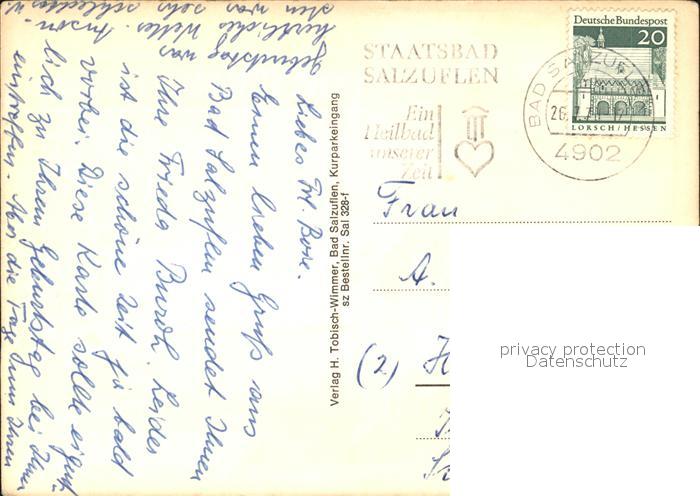 Liebes Frl. Bose.
Einen lieben Gruß aus
Bad Salzuflen sendet Ihnen
Ihre Frieda Burch. Leider
ist die schöne Zeit für bald
vorbei. Diese Karte sollte eigent-
lich zu Ihrem Geburtstag bei Ihnen
eintreffen. Aber die Tage zum Ihren
Geburtstag was
herrliches Wetter. Anson-
sten war sehr schlechtes
Verlag H. Tobisch-Wimmer, Bad Salzuflen, Kurparkeingang
sz Bestellnr. Sal 328-f
STAATSBAD
SALZUFLEN
Ein
Heilbad
unserer
Zeit
BAD SALZUFLEN
4902
Deutsche Bundespost
20
LORSCH/HESSEN
Frau
A.
(2) H
privacy protection
Datenschutz